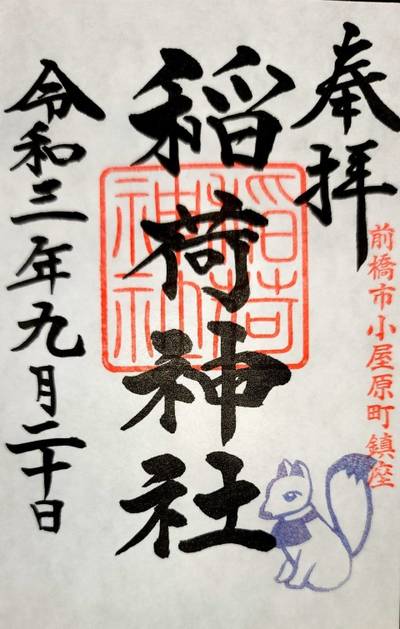 奉拝
前橋市小屋原町鎮座
稲荷神社
稲荷
神社
令和三年九月二十日